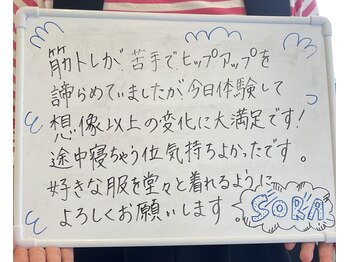 筋トレが苦手でヒップアップを
諦らめていましたが今日体験して
想像以上の変化に大満足です!
途中寝ちゃう位気持ちよかったです。
好きな服を堂々と着れるように
よろしくお願いします。
SORA